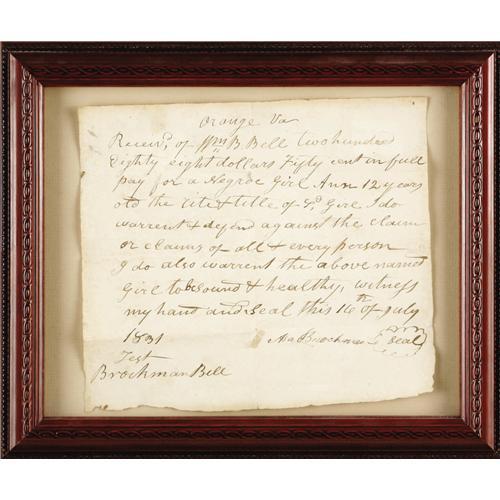 Orange Va
Receivd, of Wm B Bell two hundred
Eighty eight dollars Fifty cent in full
pay for a Negroe Girl Ann 12 years
old the rite & title of Sd, Girl I do
warrent & defend against the claim
or claims of all & every person
I do also warrent the above named
Girl to be sound & healthy, witness
my hand and Seal this 16th of July
1831 Brockman Seal
Test
Brockman Bell